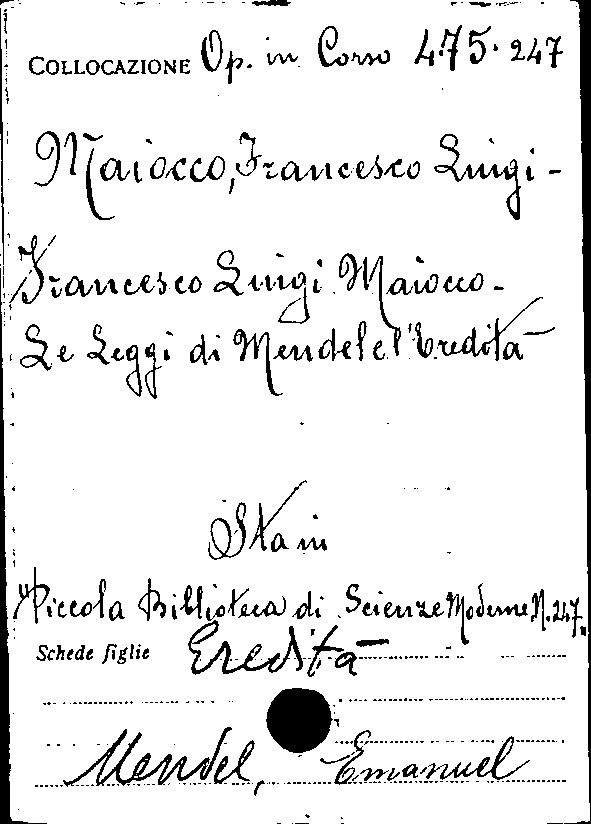 COLLOCAZIONE Op. in Corso 475.247
Maiocco, Francesco Luigi -
Francesco Luigi Maiocco -
Le Leggi di Mendel e l'Eredità
Sta in
"Piccola Biblioteca di Scienze Moderne N. 247"
Schede figlie Eredità
Mendel, Emanuel